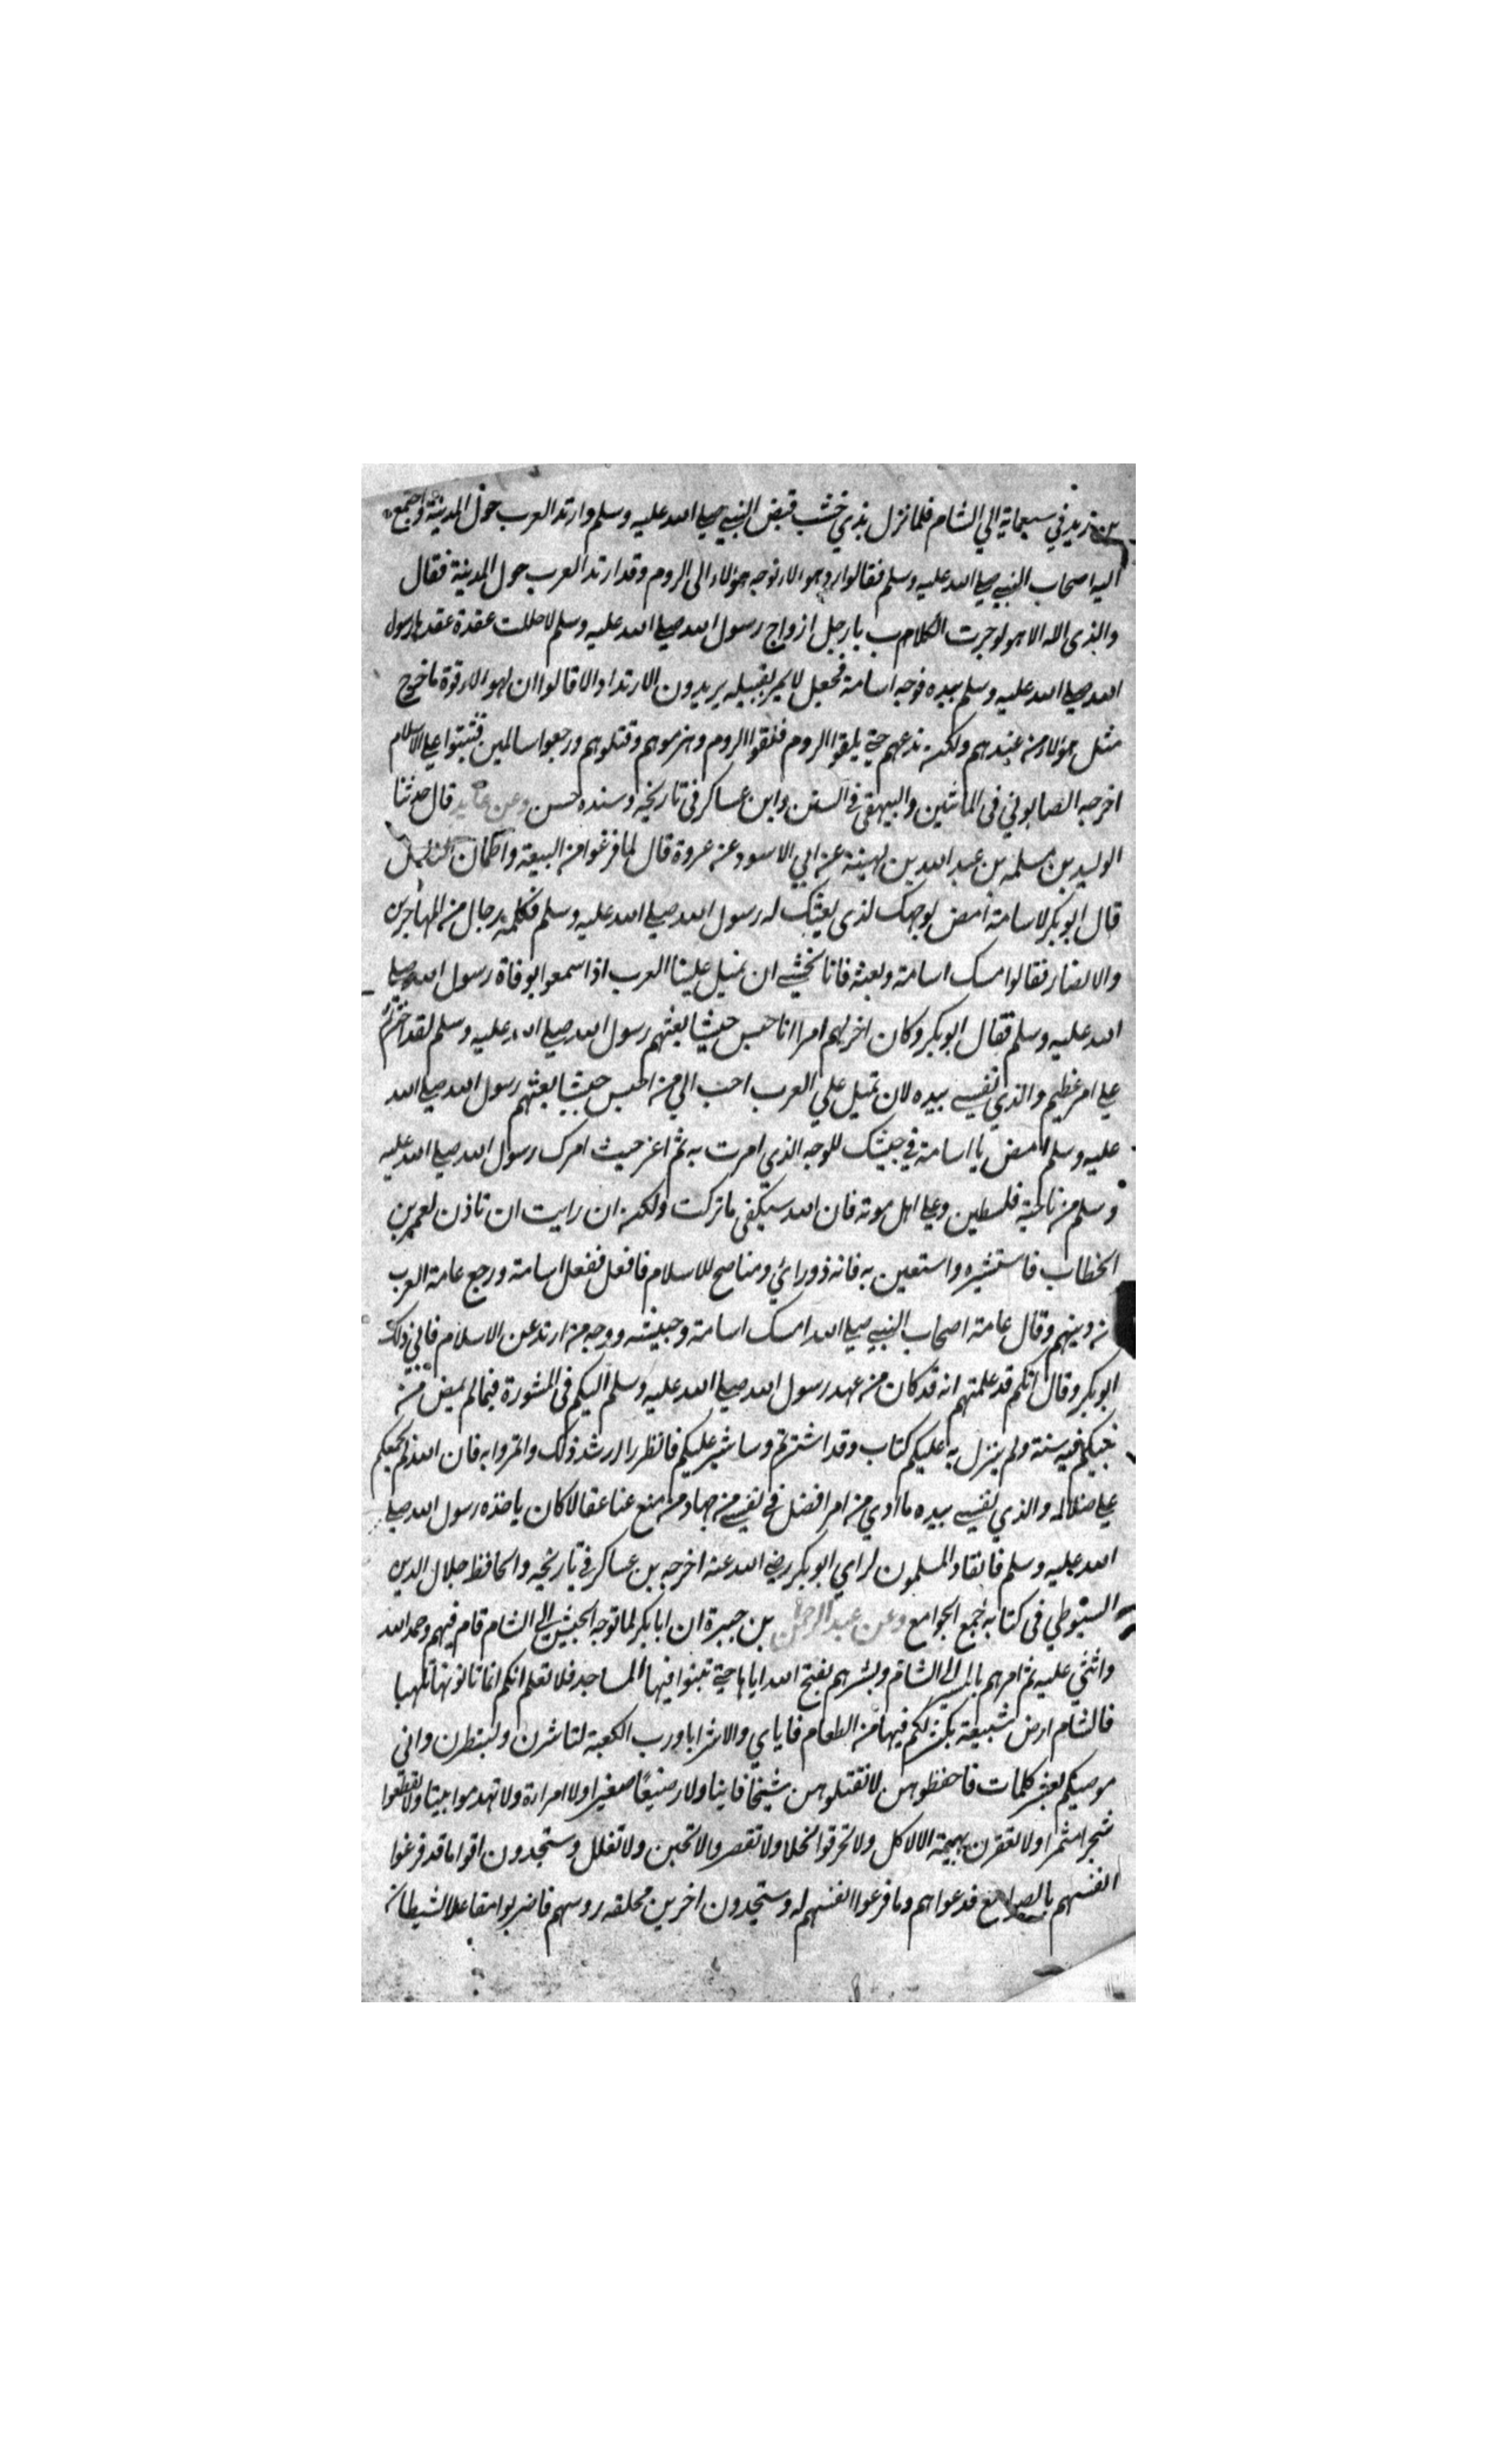 بن زيد في سبعماية الي الشام فلما نزل بذي خشب قبض النبي صلي الله عليه وسلم وارتد العرب حول المدينة واجتمع
اليه اصحاب النبي صلي الله عليه وسلم فقالوا رد هولاء توجه هولاء الى الروم وقد ارتد العرب حول المدينة فقال
والذى لا اله الا هو لو جرت الكلاب بارجل ازواج رسول الله صلي الله عليه وسلم لا حللت عقدة عقدها رسول
الله صلي الله عليه وسلم بيده فوجه اسامة فجعل لا يمر بقبيله يريدون الارتداد الا قالوا ان لهولاء قوة ما خرج
مثل هولاء من عندهم ولكن ندعهم حتي يلقوا الروم فلقوا الروم وهزموهم وقتلوهم ورجعوا سالمين فثبتوا علي الاسلام
اخرجه الصابوني فى المائتين والبيهقى في السنن وابن عساكر فى تاريخه وسنده حسن وعن عايد قال حدثنا
الوليد بن مسلمه بن عبد الله بن لهيعة عن ابي الاسود عن عروة قال لما فرغوا من البيعة واطمان الناس
قال ابو بكر لاسامة امض لوجهك لذى بعثك له رسول الله صلي الله عليه وسلم فكلمه رجال من المهاجرين
والانصار فقالوا امسك اسامة وبعثه فانا نخشي ان تميل علينا العرب اذا سمعوا بوفاة رسول الله صلي
الله عليه وسلم فقال ابو بكر وكان اخرلهم امرا انا حبس جيشا بعثهم رسول الله صلي الله عليه وسلم لقد اجترئت
علي امر عظيم والذي نفسي بيده لان تميل علي العرب احب الي من احبس جيشا بعثهم رسول الله صلي الله
عليه وسلم امض يا اسامة في جيشك للوجه الذي امرت به ثم اغز حيث امرك رسول الله صلي الله عليه
وسلم من ناحية فلسطين وعلي اهل موته فان الله سيكفى ما تركت ولكن ان رايت ان تاذن لعمر بن
الخطاب فاستشيره واستعين به فانه ذو رائي ومناصح للاسلام فافعل ففعل اسامة ورجع عامة العرب
عن دينهم وقال عامة اصحاب النبي صلي الله امسك اسامة وجيشه ووجه من ارتد عن الاسلام فابي ذلك
ابو بكر وقال انكم قد علمتم انه قد كان من عهد رسول الله صلي الله عليه وسلم اليكم فى المشورة فيما لم يمض من
نبيكم فيه سنة ولم ينزل به عليكم كتاب وقد اشترتم وساشير عليكم فانظروا ارشد ذلك واتمروا به فان الله لم يجمعكم
علي ضلاله والذي نفسي بيده ما ادي من امر افضل في نفسي من جهاد من منع عنا عقالا كان ياخذه رسول الله صلي
الله عليه وسلم فانقاد المسلمون لراي ابو بكر رضي الله عنه اخرجه بن عساكر في تاريخه والحافظ جلال الدين
السيوطي فى كتابه جمع الجوامع وعن عبد الرحمن بن جبيرة ان ابا بكر لما توجه الجيش الي الشام قام فيهم وحمد الله
واثني عليه ثم امرهم بالمسير الي الشام وبشرهم بفتح الله اياها حتي تبنوا فيها المساجد فلا تعلم انكم انما تاتونها تلهيا
فالشام ارض شبيعة يكثر لكم فيها من الطعام فاياي والاشرا ورب الكعبة لتاشرن ولتبطرن واني
موصيكم بعشر كلمات فاحفظوهن لا تقتلوهن شيخا فانيا ولا رضيعا صغيرا ولا امراة ولا تهدموا بيتا ولا تقطعوا
شجرا مثمرا ولا تعقرن بهيمة الا لاكل ولا تحرقوا نخلا ولا تقصر ولا تجبن ولا تغلل وستجدون اقواما قد فرغوا
انفسهم بالصوامع فدعواهم وما فرغوا انفسهم له وستجدون اخرين محلقه روسهم فاضربوا مقاعد الشيطان